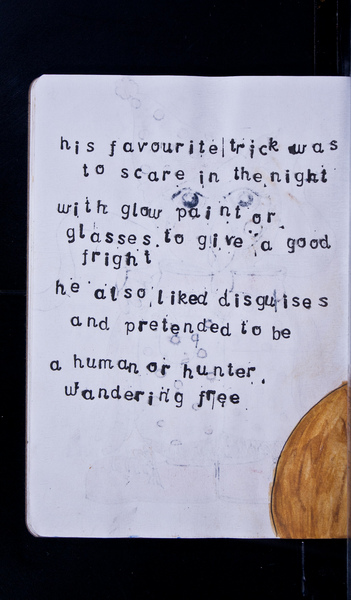 his favourite trick was
to scare in the night
with glow paint or
glasses to give a good
fright
he also liked disguises
and pretended to be
a human or hunter
wandering free